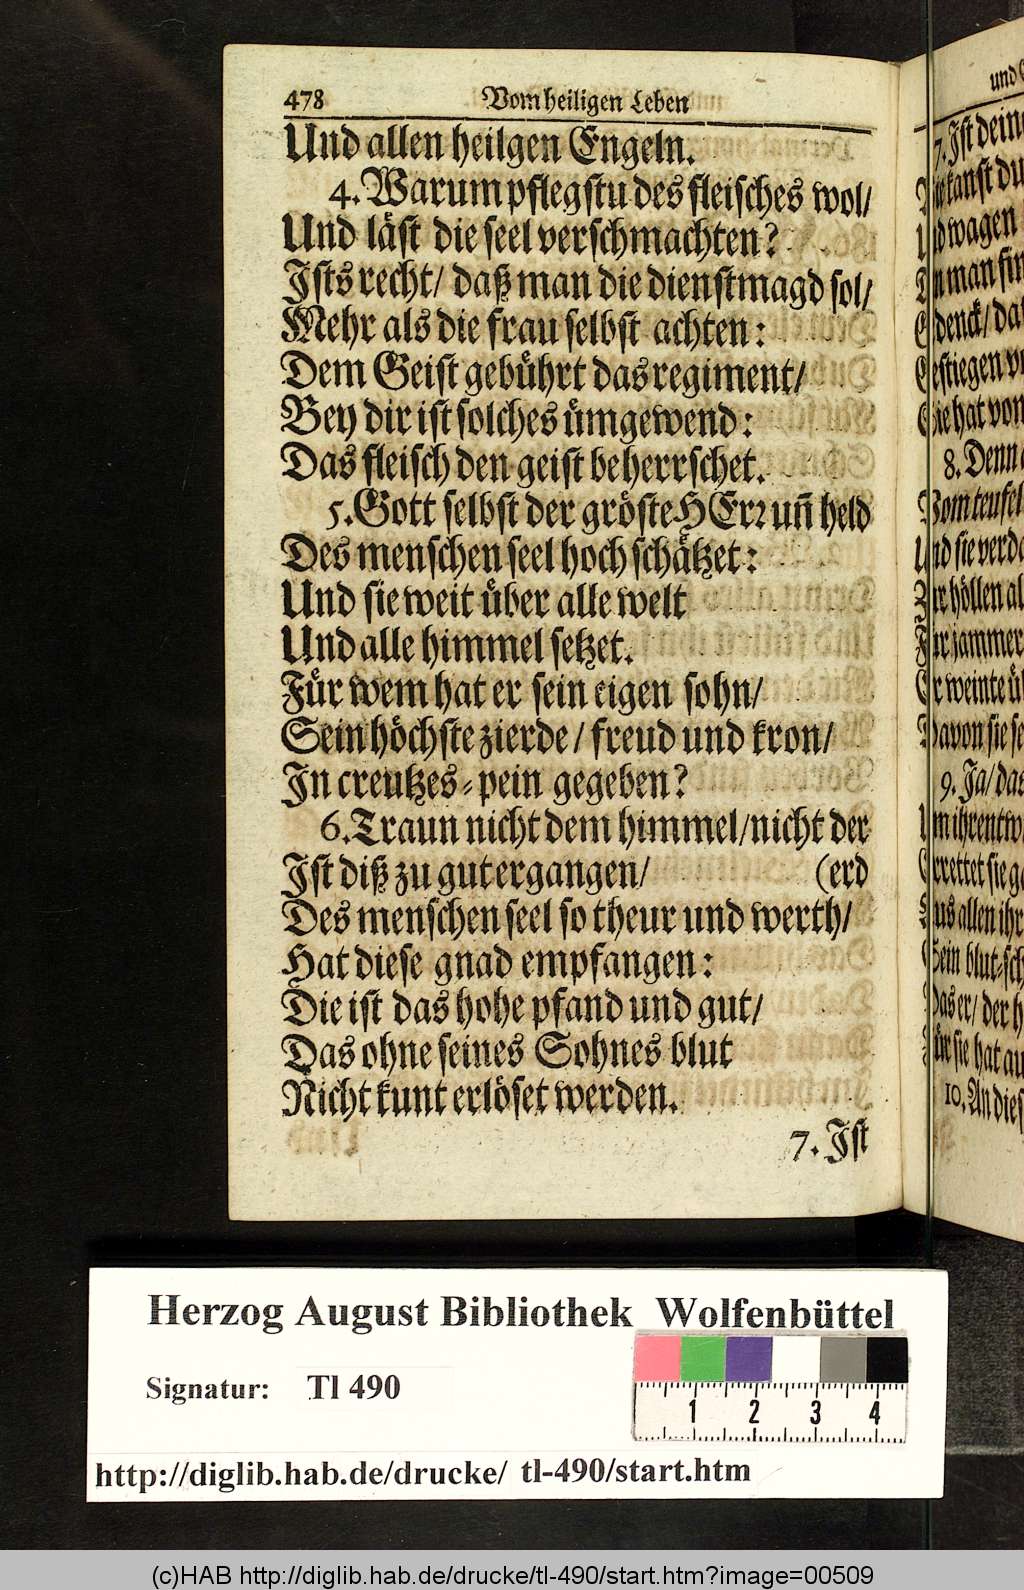 478 Vom heiligen Leben
Und allen heilgen Engeln.
4. Warum pflegstu des fleisches wol/
Und läst die seel verschmachten?
Ists recht/ daß man die dienstmagd sol/
Mehr als die frau selbst achten:
Dem Geist gebührt das regiment/
Bey dir ist solches ümgewend:
Das fleisch den geist beherrschet.
5. Gott selbst der gröste HErr uñ held
Des menschen seel hoch schätzet:
Und sie weit über alle welt
Und alle himmel setzet.
Für wem hat er sein eigen sohn/
Sein höchste zierde/ freud und kron/
In creutzes-pein gegeben?
6. Traun nicht dem himmel/nicht der
Ist diß zu gut ergangen/ (erd
Des menschen seel so theur und werth/
Hat diese gnad empfangen:
Die ist das hohe pfand und gut/
Das ohne seines Sohnes blut
Nicht kunt erlöset werden.
7. Ist
und
7. Ist
kanst du
wagen
man
denck/
8. Denn
Vom teufel
höllen
jammer
weinte
9. Ja/ das
allen
Sein
Das er/ der
sie hat
10. An
Herzog August Bibliothek Wolfenbüttel
Signatur: Tl 490
1 2 3 4
http://diglib.hab.de/drucke/ tl-490/start.htm
(c)HAB http://diglib.hab.de/drucke/tl-490/start.htm?image=00509